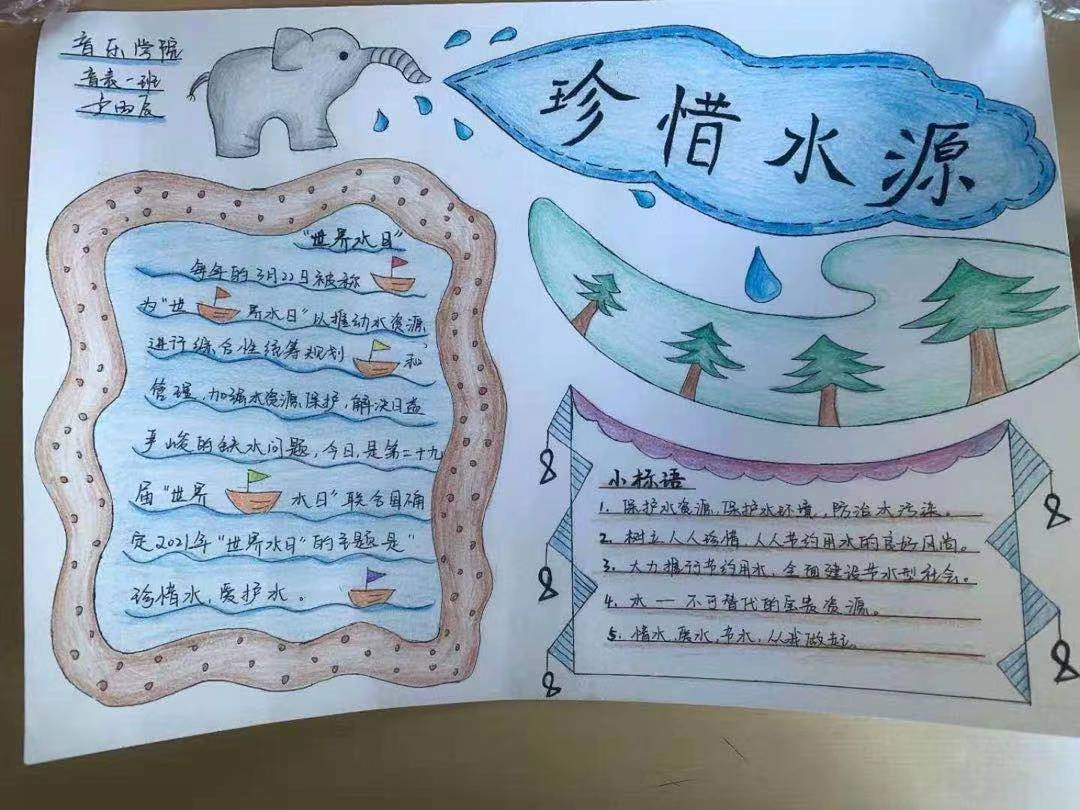 音乐学院
音表一班
珍惜水源
"世界水日"
每年的3月22日被称
为"世界水日"以推动水资源
进行综合性统筹规划和
管理,加强水资源保护,解决日益
严峻的缺水问题,今日,是第二十九
届"世界水日"联合国确
定2021年"世界水日"的主题是"
珍惜水,爱护水。
小标语
1. 保护水资源,保护水环境,防治水污染。
2. 树立人人珍惜,人人节约用水的良好风尚。
3. 大力推行节约用水,全面建设节水型社会。
4. 水一不可替代的宝贵资源。
5. 惜水,爱水,节水,从我做起。